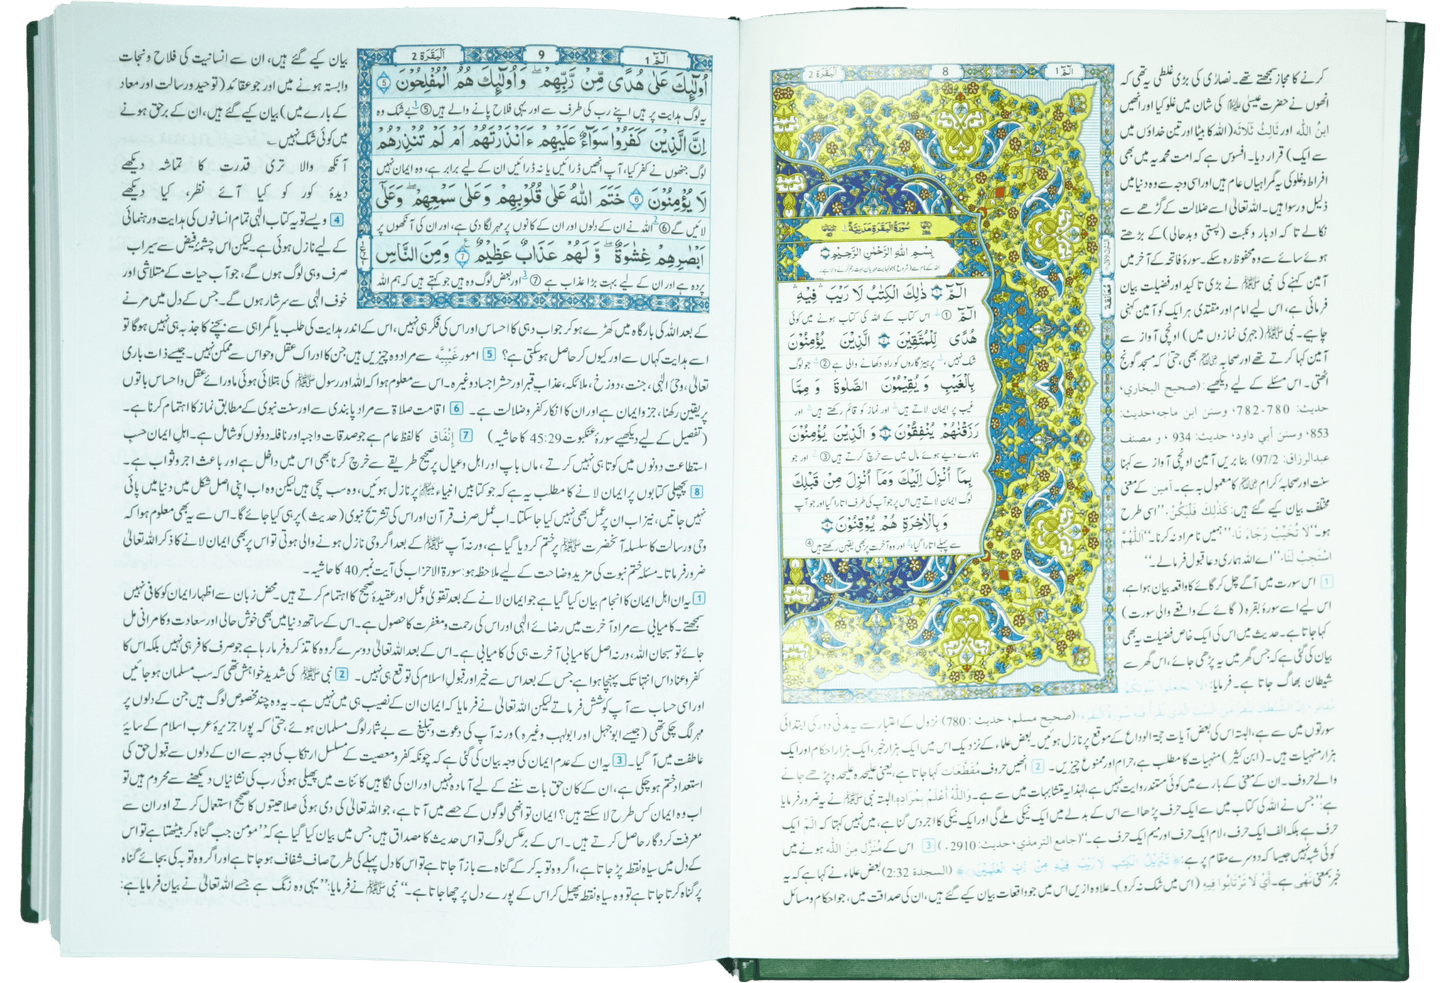 البقرة 2
8
الٓمّٓ 1
سُورَةُ الْبَقَرَةِ مَدَنِيَّةٌ
بِسْمِ اللهِ الرَّحْمٰنِ الرَّحِيْمِ
الٓمّٓ ذٰلِكَ الْكِتٰبُ لَا رَيْبَ فِيْهِ
الٓمّٓ ① اس کتاب کے اللہ کی کتاب ہونے میں کوئی
هُدًى لِّلْمُتَّقِيْنَ الَّذِيْنَ يُؤْمِنُوْنَ
شک نہیں، پرہیزگاروں کو راہ دکھانے والی ہے ② جو لوگ
بِالْغَيْبِ وَيُقِيْمُوْنَ الصَّلٰوةَ وَمِمَّا
غیب پر ایمان لاتے ہیں اور نماز کو قائم رکھتے ہیں اور
رَزَقْنٰهُمْ يُنْفِقُوْنَ وَالَّذِيْنَ يُؤْمِنُوْنَ
ہمارے دیے ہوئے مال میں سے خرچ کرتے ہیں ③ اور جو
بِمَآ اُنْزِلَ اِلَيْكَ وَمَآ اُنْزِلَ مِنْ قَبْلِكَ
لوگ ایمان لاتے ہیں اس پر جو آپ کی طرف اتارا گیا اور جو آپ
وَبِالْاٰخِرَةِ هُمْ يُوْقِنُوْنَ
سے پہلے اتارا گیا، اور وہ آخرت پر بھی یقین رکھتے ہیں ④
کرنے کا مجاز سمجھتے تھے۔ نصاریٰ کی بڑی غلطی یہ تھی کہ
انھوں نے حضرت عیسیٰ کی شان میں غلو کیا اور انھیں
ابْنُ اللہ اور ثَالِثُ ثَلَاثَة (اللہ کا بیٹا اور تین خداؤں میں
سے ایک) قرار دیا۔ افسوس ہے کہ امت محمدیہ میں بھی
افراط و غلو کی یہ گمراہیاں عام ہیں اور اسی وجہ سے وہ دنیا میں
ذلیل و رسوا ہیں۔ اللہ تعالیٰ اسے ضلالت کے گڑھے سے
نکالے تاکہ ادبار و نکبت (پستی و بدحالی) کے بڑھتے
ہوئے سائے سے وہ محفوظ رہ سکے۔ سورۂ فاتحہ کے آخر میں
آمین کہنے کی نبی ﷺ نے بڑی تاکید اور فضیلت بیان
فرمائی ہے، اس لیے امام اور مقتدی ہر ایک کو آمین کہنی
چاہیے۔ نبی ﷺ (جہری نمازوں میں) اونچی آواز سے
آمین کہا کرتے تھے اور صحابہ بھی، حتیٰ کہ مسجد گونج
اٹھتی۔ اس مسئلے کے لیے دیکھیے (صحیح البخاري،
حدیث: 780-782، وسنن ابن ماجه، حدیث:
853، وسنن أبي داود، حدیث: 934 ، و مصنف
عبدالرزاق: 97/2) بنا بریں آمین اونچی آواز سے کہنا
سنت اور صحابہ کرام کا معمول بہ ہے۔ آمین کے معنی
مختلف بیان کیے گئے ہیں: كَذٰلِكَ فَلْيَكُنْ ”اسی طرح
ہو۔“ لَا تُخَيِّبْ رَجَاءَنَا ”ہمیں نامراد نہ کرنا۔“ اَللّٰهُمَّ
اسْتَجِبْ لَنَا ”اے اللہ ہماری دعا قبول فرما لے۔“
1 اس سورت میں آگے چل کر گائے کا واقعہ بیان ہوا ہے،
اس لیے اسے سورۂ بقرہ (گائے کے واقعے والی سورت)
کہا جاتا ہے۔ حدیث میں اس کی ایک خاص فضیلت یہ بھی
بیان کی گئی ہے کہ جس گھر میں یہ پڑھی جائے، اس گھر سے
شیطان بھاگ جاتا ہے۔ فرمایا:
(صحیح مسلم، حدیث: 780) نزول کے اعتبار سے یہ مدنی دور کی ابتدائی
سورتوں میں سے ہے، البتہ اس کی بعض آیات حجۃ الوداع کے موقع پر نازل ہوئیں۔ بعض علماء کے نزدیک اس میں ایک ہزار خبر، ایک ہزار احکام اور ایک
ہزار منہیات ہیں۔ (ابن کثیر) منہیات کا مطلب ہے، حرام اور ممنوع چیزیں۔ 2 انھیں حروف مُقَطَّعَات کہا جاتا ہے، یعنی علیحدہ علیحدہ پڑھے جانے
والے حروف۔ ان کے معنی کے بارے میں کوئی مستند روایت نہیں ہے، لہٰذا یہ متشابہات میں سے ہے۔ وَاللّٰهُ أَعْلَمُ بِمُرَادِهِ۔ البتہ نبی ﷺ نے یہ ضرور فرمایا
ہے: ”جس نے اللہ کی کتاب میں سے ایک حرف پڑھا اسے اس کے بدلے میں ایک نیکی ملے گی اور ایک نیکی کا اجر دس گنا ہے، میں نہیں کہتا کہ الٓمّٓ ایک
حرف ہے بلکہ الف ایک حرف، لام ایک حرف اور میم ایک حرف ہے۔“ (جامع الترمذي، حدیث: 2910۔) 3 اس کے مُنَزَّل مِنَ اللّٰهِ ہونے میں
کوئی شبہ نہیں جیسا کہ دوسرے مقام پر ہے: تَنْزِيْلُ الْكِتٰبِ لَا رَيْبَ فِيْهِ مِنْ رَّبِّ الْعٰلَمِيْنَ (السجدة 2:32) بعض علماء نے کہا ہے کہ یہ
خبر بمعنی نہی ہے۔ أَيْ لَا تَرْتَابُوا فِيهِ (اس میں شک نہ کرو)۔ علاوہ ازیں اس میں جو واقعات بیان کیے گئے ہیں، ان کی صداقت میں، جو احکام و مسائل
البقرة 2
9
الٓمّٓ 1
اُولٰٓئِكَ عَلٰى هُدًى مِّنْ رَّبِّهِمْ وَاُولٰٓئِكَ هُمُ الْمُفْلِحُوْنَ
یہ لوگ ہدایت پر ہیں اپنے رب کی طرف سے اور یہی فلاح پانے والے ہیں ⑤ بے شک وہ
اِنَّ الَّذِيْنَ كَفَرُوْا سَوَآءٌ عَلَيْهِمْ ءَاَنْذَرْتَهُمْ اَمْ لَمْ تُنْذِرْهُمْ
لوگ جنھوں نے کفر کیا، آپ انھیں ڈرائیں یا نہ ڈرائیں ان کے لیے برابر ہے، وہ ایمان نہیں
لَا يُؤْمِنُوْنَ خَتَمَ اللهُ عَلٰى قُلُوْبِهِمْ وَعَلٰى سَمْعِهِمْ وَعَلٰى
لائیں گے ⑥ اللہ نے ان کے دلوں اور ان کے کانوں پر مہر لگا دی ہے، اور ان کی آنکھوں پر
اَبْصٰرِهِمْ غِشٰوَةٌ وَّلَهُمْ عَذَابٌ عَظِيْمٌ وَمِنَ النَّاسِ
پردہ ہے اور ان کے لیے بہت بڑا عذاب ہے ⑦ اور بعض لوگ وہ ہیں جو کہتے ہیں کہ ہم اللہ
بیان کیے گئے ہیں، ان سے انسانیت کی فلاح و نجات
وابستہ ہونے میں اور جو عقائد (توحید و رسالت اور معاد
کے بارے میں) بیان کیے گئے ہیں، ان کے برحق ہونے
میں کوئی شک نہیں۔
آنکھ والا تری قدرت کا تماشہ دیکھے
دیدۂ کور کو کیا آئے نظر، کیا دیکھے
4 ویسے تو یہ کتاب الٰہی تمام انسانوں کی ہدایت و رہنمائی
کے لیے نازل ہوئی ہے لیکن اس چشمۂ فیض سے سیراب
صرف وہی لوگ ہوں گے، جو آب حیات کے متلاشی اور
خوف الٰہی سے سرشار ہوں گے۔ جس کے دل میں مرنے
کے بعد اللہ کی بارگاہ میں کھڑے ہو کر جواب دہی کا احساس اور اس کی فکر ہی نہیں، اس کے اندر ہدایت کی طلب یا گمراہی سے بچنے کا جذبہ ہی نہیں ہوگا تو
اسے ہدایت کہاں سے اور کیوں کر حاصل ہو سکتی ہے؟ 5 امور غَيْبِيَّه سے مراد وہ چیزیں ہیں جن کا ادراک عقل و حواس سے ممکن نہیں۔ جیسے ذات باری
تعالیٰ، وحی الٰہی، جنت، دوزخ، ملائکہ، عذاب قبر اور حشر اجساد وغیرہ۔ اس سے معلوم ہوا کہ اللہ اور رسول ﷺ کی بتلائی ہوئی ماورائے عقل و احساس باتوں
پر یقین رکھنا، جزو ایمان ہے اور ان کا انکار کفر و ضلالت ہے۔ 6 اقامت صلاۃ سے مراد پابندی سے اور سنت نبوی کے مطابق نماز کا اہتمام کرنا ہے۔
(تفصیل کے لیے دیکھیے سورۂ عنکبوت 45:29 کا حاشیہ) 7 إِنْفَاق کا لفظ عام ہے جو صدقات واجبہ اور نافلہ دونوں کو شامل ہے۔ اہل ایمان حسب
استطاعت دونوں میں کوتاہی نہیں کرتے، ماں باپ اور اہل و عیال پر صحیح طریقے سے خرچ کرنا بھی اس میں داخل ہے اور باعث اجر و ثواب ہے۔
8 پچھلی کتابوں پر ایمان لانے کا مطلب یہ ہے کہ جو کتابیں انبیاء پر نازل ہوئیں، وہ سب سچی ہیں لیکن وہ اب اپنی اصل شکل میں دنیا میں پائی
نہیں جاتیں، نیز اب ان پر عمل بھی نہیں کیا جا سکتا۔ اب عمل صرف قرآن اور اس کی تشریح نبوی (حدیث) پر ہی کیا جائے گا۔ اس سے یہ بھی معلوم ہوا کہ
وحی و رسالت کا سلسلہ آنحضرت ﷺ پر ختم کر دیا گیا ہے، ورنہ آپ ﷺ کے بعد اگر وحی نازل ہونے والی ہوتی تو اس پر بھی ایمان لانے کا ذکر اللہ تعالیٰ
ضرور فرماتا۔ مسئلہ ختم نبوت کی مزید وضاحت کے لیے ملاحظہ ہو: سورۃ الاحزاب کی آیت نمبر 40 کا حاشیہ۔
1 یہ ان اہل ایمان کا انجام بیان کیا گیا ہے جو ایمان لانے کے بعد تقویٰ و عمل اور عقیدۂ صحیح کا اہتمام کرتے ہیں۔ محض زبان سے اظہار ایمان کو کافی نہیں
سمجھتے۔ کامیابی سے مراد آخرت میں رضائے الٰہی اور اس کی رحمت و مغفرت کا حصول ہے۔ اس کے ساتھ دنیا میں بھی خوش حالی اور سعادت و کامرانی مل
جائے تو سبحان اللہ، ورنہ اصل کامیابی آخرت ہی کی کامیابی ہے۔ اس کے بعد اللہ تعالیٰ دوسرے گروہ کا تذکرہ فرما رہا ہے جو صرف کافر ہی نہیں بلکہ اس کا
کفر و عناد اس انتہا تک پہنچا ہوا ہے جس کے بعد اس سے خیر اور قبول اسلام کی توقع ہی نہیں۔ 2 نبی ﷺ کی شدید خواہش تھی کہ سب مسلمان ہو جائیں
اور اسی حساب سے آپ کوشش فرماتے لیکن اللہ تعالیٰ نے فرمایا کہ ایمان ان کے نصیب ہی میں نہیں ہے۔ یہ وہ چند مخصوص لوگ ہیں جن کے دلوں پر
مہر لگ چکی تھی (جیسے ابو جہل اور ابو لہب وغیرہ) ورنہ آپ کی دعوت و تبلیغ سے بے شمار لوگ مسلمان ہوئے، حتیٰ کہ پورا جزیرۂ عرب اسلام کے سایۂ
عاطفت میں آ گیا۔ 3 یہ ان کے عدم ایمان کی وجہ بیان کی گئی ہے کہ چونکہ کفر و معصیت کے مسلسل ارتکاب کی وجہ سے ان کے دلوں سے قبول حق کی
استعداد ختم ہو چکی ہے، ان کے کان حق بات سننے کے لیے آمادہ نہیں اور ان کی نگاہیں کائنات میں پھیلی ہوئی رب کی نشانیاں دیکھنے سے محروم ہیں تو
اب وہ ایمان کس طرح لا سکتے ہیں؟ ایمان تو انھی لوگوں کے حصے میں آتا ہے، جو اللہ تعالیٰ کی دی ہوئی صلاحیتوں کا صحیح استعمال کرتے اور ان سے
معرفت کردگار حاصل کرتے ہیں۔ اس کے برعکس لوگ تو اس حدیث کا مصداق ہیں جس میں بیان کیا گیا ہے کہ ”مومن جب گناہ کر بیٹھتا ہے تو اس
کے دل میں سیاہ نقطہ پڑ جاتا ہے، اگر وہ توبہ کر کے گناہ سے باز آ جاتا ہے تو اس کا دل پہلے کی طرح صاف شفاف ہو جاتا ہے اور اگر وہ توبہ کی بجائے گناہ
پر گناہ کرتا جاتا ہے تو وہ سیاہ نقطہ پھیل کر اس کے پورے دل پر چھا جاتا ہے۔“ نبی ﷺ نے فرمایا: ”یہی وہ زنگ ہے جسے اللہ تعالیٰ نے بیان فرمایا ہے: